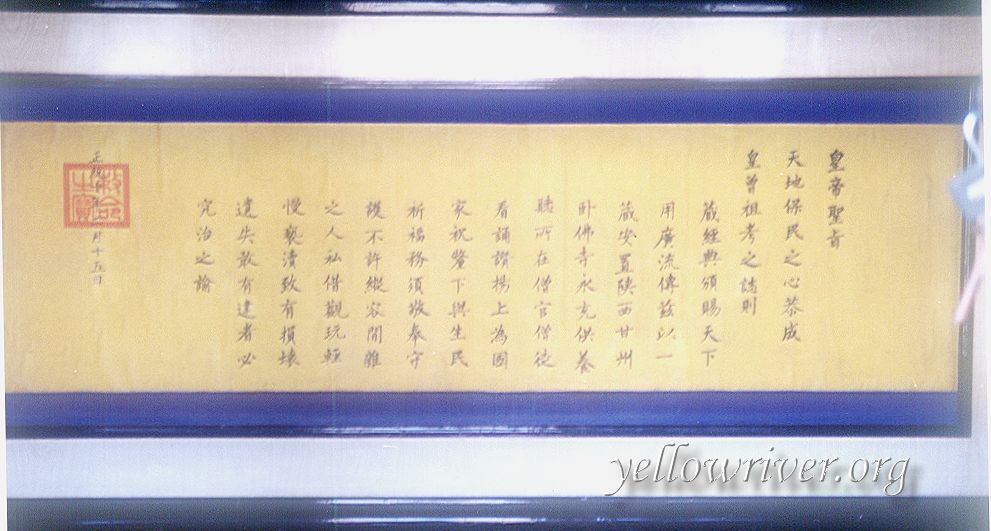 皇帝聖旨
天地保民之心恭成
皇曾祖考之諸則
藏經典頒賜天下
用廣流傳茲以一
藏安置陝西甘州
卧佛寺永充供養
聽所在僧官僧徒
看誦讚揚上為國
家祝釐下與生民
祈福務須敬奉守
護不許縱容閒雜
之人私借觀玩輕
慢褻瀆致有損壞
遺失敢有違者必
究治之諭
正統月十五日
敕命之寶
yellowriver.org